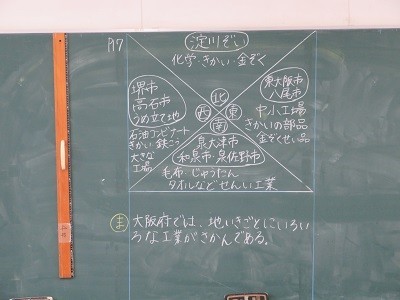 P7
淀川ぞい
化学・きかい・金ぞく
堺市
高石市
うめ立て地
石油コンビナート
きかい 鉄こう
大きな
工場
北
西
東
南
東大阪市
八尾市
中小工場
きかいの部品
金ぞくせい品
泉大津市
和泉市・泉佐野市
毛布・じゅうたん
タオルなどせんい工業
ま 大阪府では、地いきごとにいろい
ろな工業がさかんである。